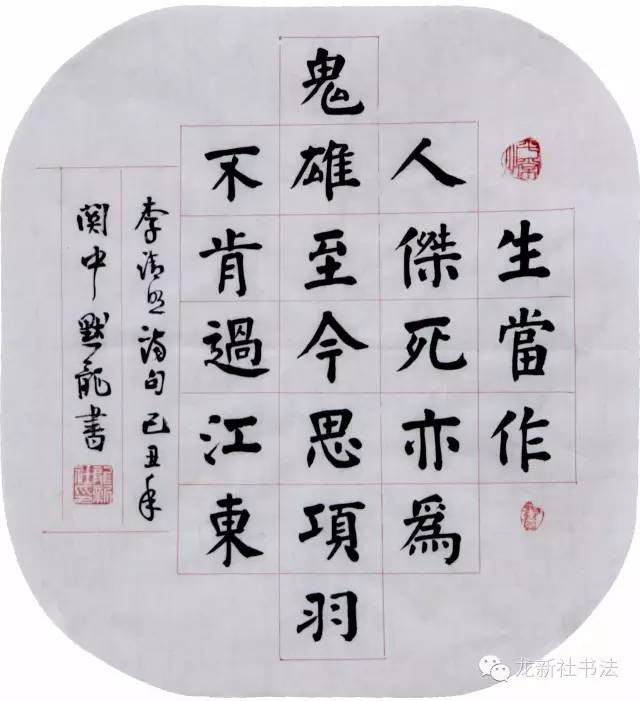 生當作
人傑死亦爲
鬼雄至今思項羽
不肯過江東
李清照詩句己丑年
關中默龍書
龙新社书法